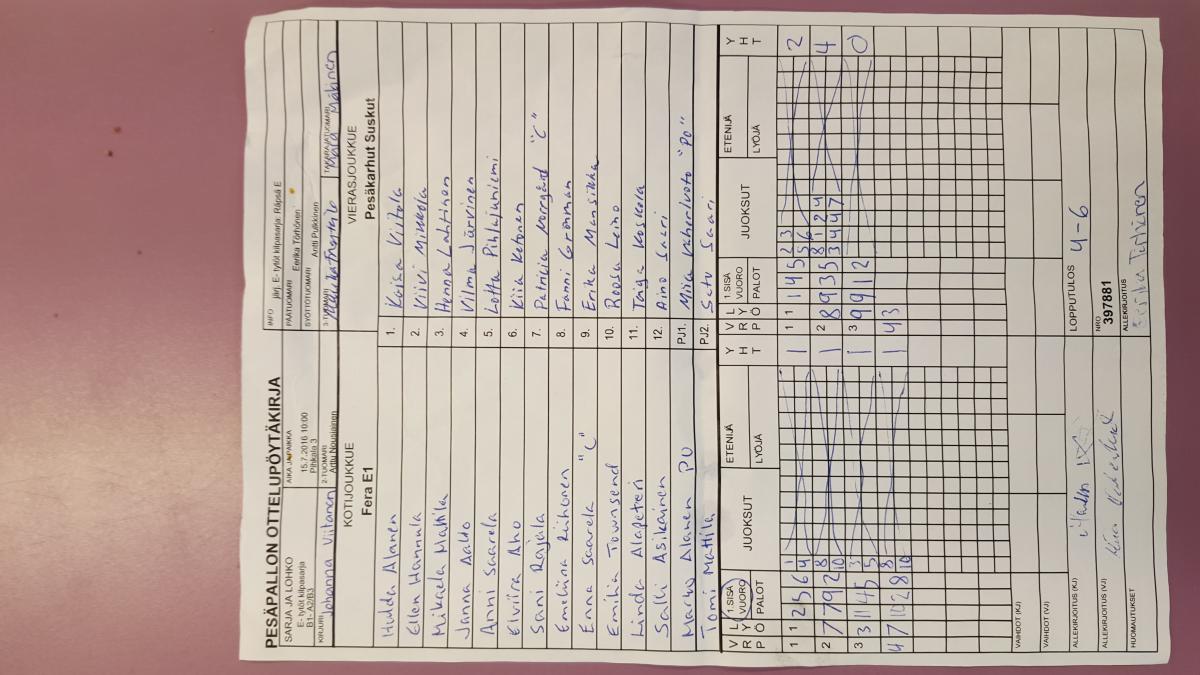 PESÄPALLON OTTELUPÖYTÄKIRJA
SARJA JA LOHKO
E- tytöt kilpasarja
B1- A2/B3
AIKA JA PAIKKA
15.7.2016 10:00
Pihkala 3
INFO järj. E- tytöt kilpasarja: Räpsä E
PÄÄTUOMARI Eerika Törhönen
SYÖTTÖTUOMARI Antti Pulkkinen
KIRJURI Johanna Viitanen
2-TUOMARI Arttu Nousiainen
3-TUOMARI
TAKARAJATUOMARI Mäkinen
KOTIJOUKKUE
Fera E1
VIERASJOUKKUE
Pesäkarhut Suskut
Hulda Alanen 1. Kaisa Viitala
Ellen Hannula 2. Kiivi Mikkola
Mikaela Mattila 3. Henna Lahtinen
Janna Aalto 4. Vilma Järvinen
Anni Saarela 5. Lotta Pihlajuniemi
Elviira Aho 6. Kiia Ketonen
Sani Rajala 7. Patricia Norrgård "C"
Emeliina Riihonen 8. Fanni Grönman
Enna Saarela "C" 9. Erika Mansikka
Emika Townsend 10. Roosa Leino
Linda Alapeteri 11. Taga Koskela
Salli Asikainen 12. Aino Saari
Marko Alanen PJ1. Miia "PO"
Tomi Mattila PJ2. Satu Saari
V L
R Y
P Ö
1.SISÄ
VUORO
PALOT
JUOKSUT
ETENIJÄ
LYÖJÄ
Y
H
T
V L
R Y
P Ö
1.SISÄ
VUORO
PALOT
JUOKSUT
ETENIJÄ
LYÖJÄ
Y
H
T
1 1 2 5 6 1 4 1 1 1 1 4 5 2 3 5 6 2
2 7 7 9 2 8 10 1 2 8 9 3 5 8 1 2 4 3 4 4 7 4
3 3 11 4 5 3 5 1 3 9 9 1 2 0
4 7 10 2 8 8 10 1 4 3
VAIHDOT (KJ)
VAIHDOT (VJ)
ALLEKIRJOITUS (KJ)
ALLEKIRJOITUS (VJ)
HUOMAUTUKSET
LOPPUTULOS 4-6
NRO
397881
ALLEKIRJOITUS